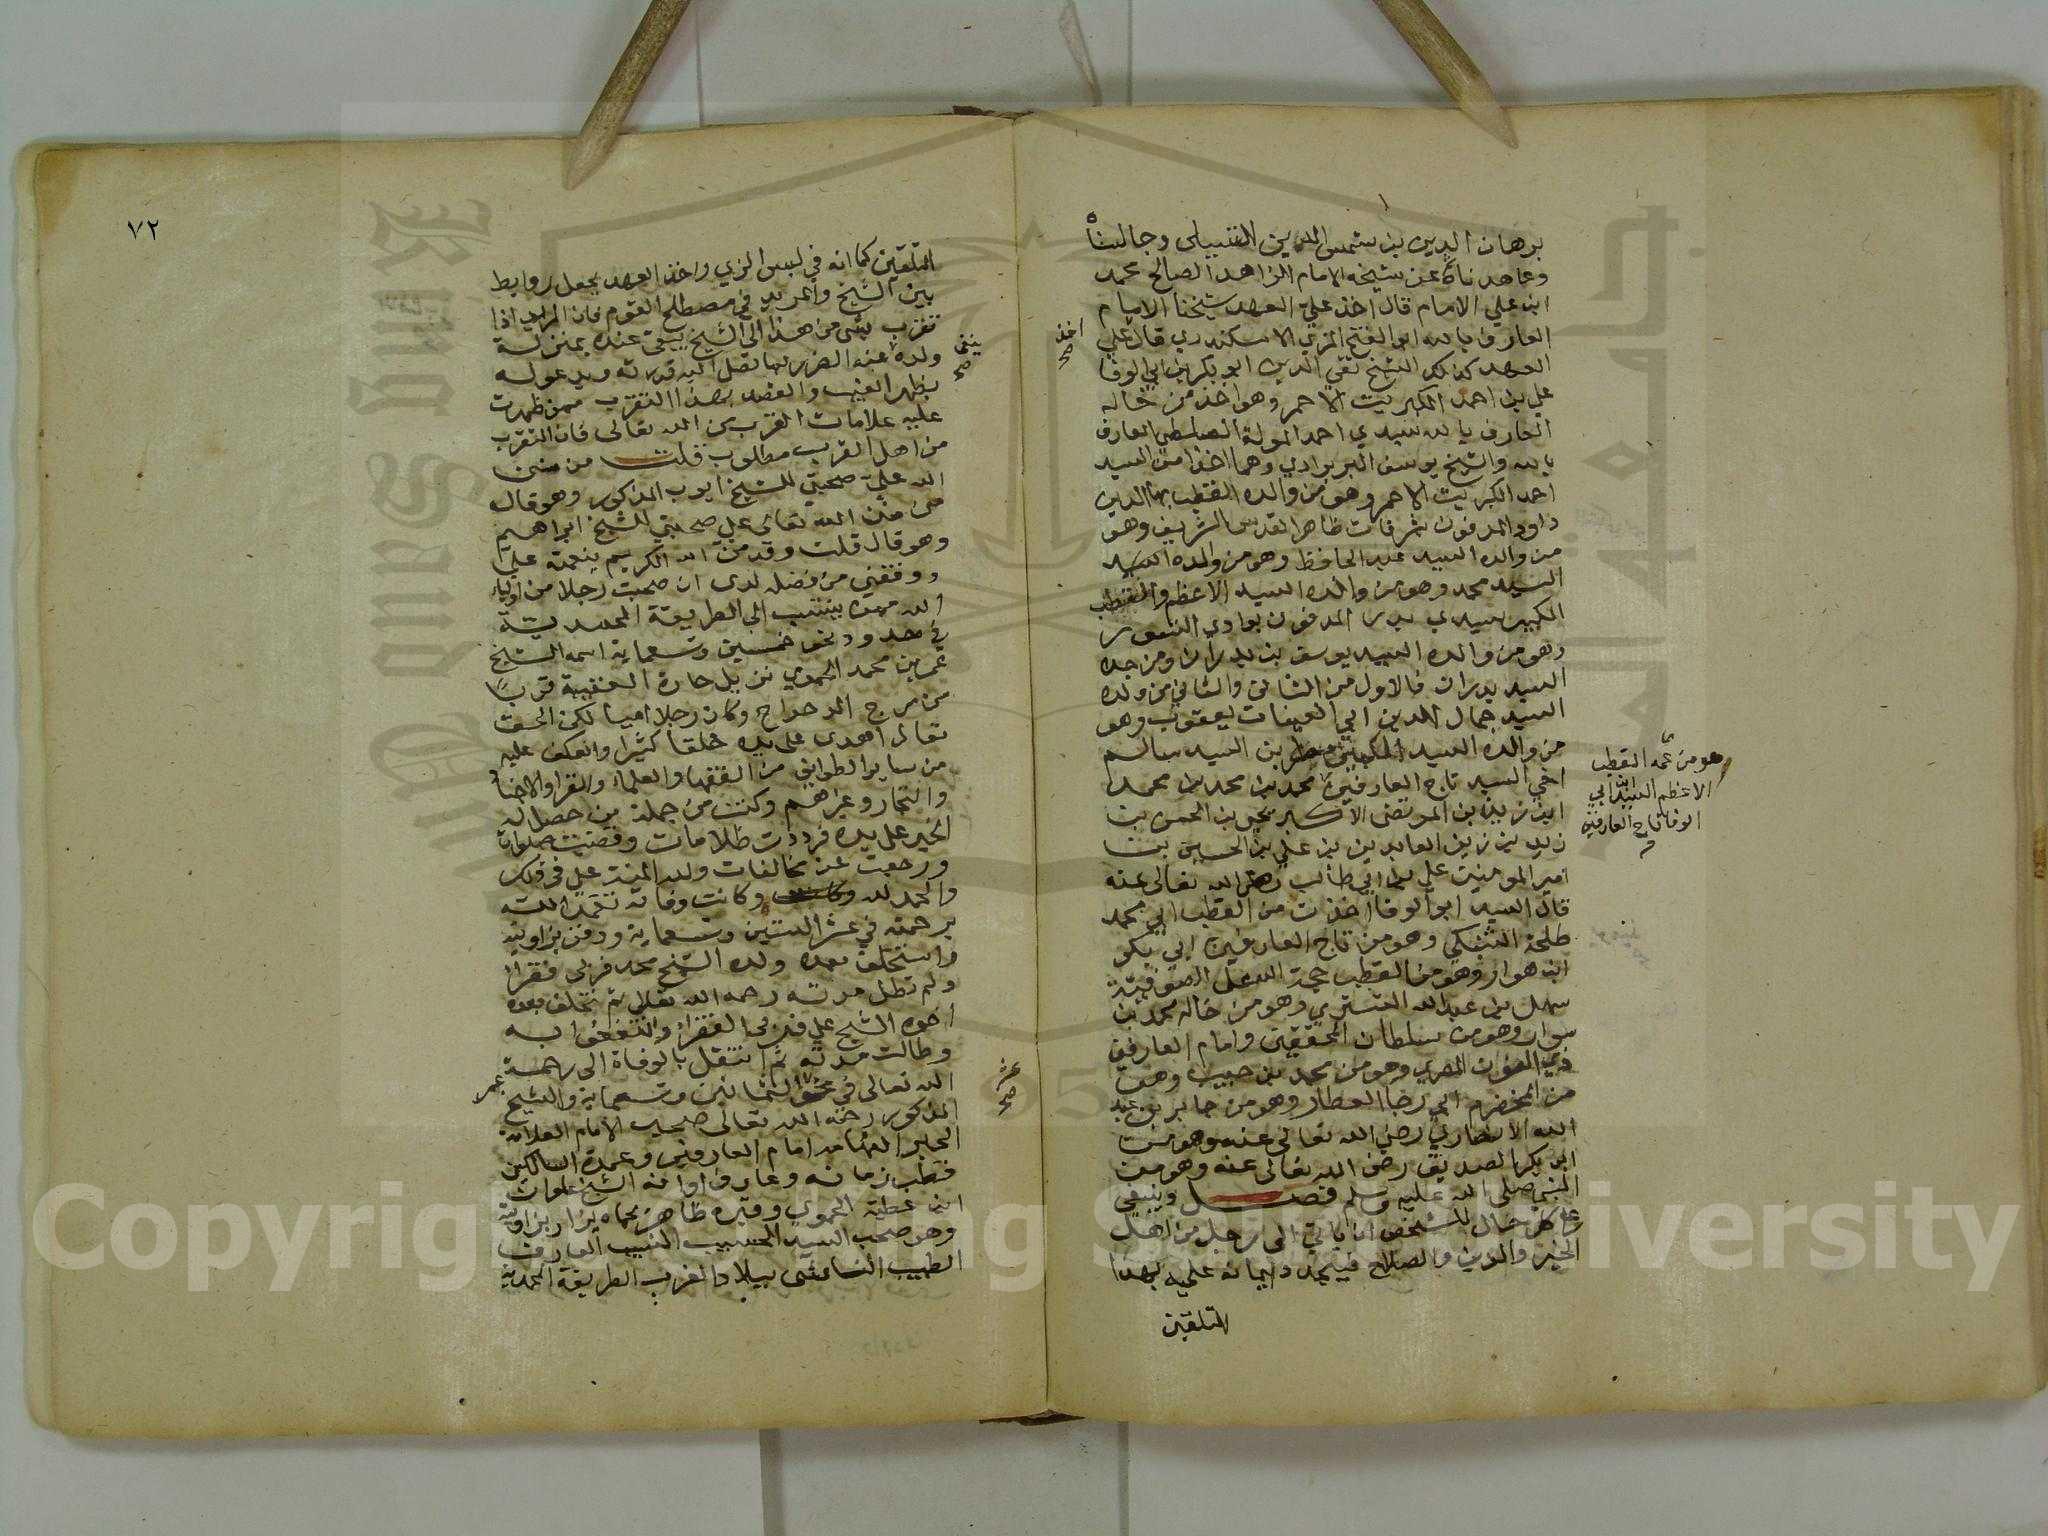 برهان الدين بن شمس الدين التتبيلى وجالسناه
وعاهدناه عن شيخه الامام الزاهد الصالح محمد
ابن علي الامام قال اخذ عليّ العهد شيخنا الامام
العارف بالله ابو الفتح المزي الاسكندري قال علي
اخذ صح
العهد كذلك الشيخ تقي الدين ابو بكر بن ابي الوفا
علي بن احمد الكبريت الاحمر وهو اخذ من خاله
العارف بالله سيدي احمد المولة العارف
بالله والشيخ يوسف البربراوي وهما اخذا من السيد
احمد الكبريت الاحمر وهو من والده القطب بها الدين
داود المدفون بشرفات ظاهر القدس الشريف وهو
من والده السيد عبد الحافظ وهو من والده السيد
السيد محمد وهو من والده السيد الاعظم والقطب
الكبير سيدي بدر المدفون بوادي النسور
وهو من والده السيد يوسف بن بدران ومن جده
السيد بدران فالاول من الثاني والثاني من ولده
السيد جمال الدين ابي يعقوب وهو
من والده السيد مطر بن السيد سالم
هو من عمه القطب
الاعظم السيد ابي
الوفا تاج العارفين
اخي السيد تاج العارفين محمد بن محمد بن محمد
ابن زيد بن المرتضى الاكبر يحيى بن الحسن بن
زيد بن زين العابدين بن علي بن الحسين بن
امير المومنين علي بن ابي طالب رضي الله تعالى عنه
قال السيد ابو الوفا اخذت من القطب ابي محمد
طلحة الشنبكي وهو من تاج العارفين ابي بكر
ابن هوار وهو من القطب حجة الله على الصوفية
سهل بن عبد الله التستري وهو من خاله محمد بن
سوار وهو من سلطان المحققين وامام العارفين
ذي النون المصري وهو من محمد بن حبيب وهو
من ابي رجا العطار وهو من جابر بن عبد
الله الانصاري رضي الله تعالى عنه وهو من
ابي بكر الصديق رضي الله تعالى عنه وهو من
النبي صلى الله عليه وسلم فصل وينبغي
على كل حال للشخص ان ياتي الى رجل من اهل
الخير والدين والصلاح فيجدد ايمانه عليه بهذا
التلقين
٧٢
التلقين كما انه في لبس الزي واخذ العهد يجعل روابط
بين الشيخ والمريد في مصطلح القوم فان المريد اذا
تقرب بشي من هذا الى الشيخ يبقى عنده بمنزلة
ولده عنه الضرر بما تصل اليه قدرته ويدعو له
بظهر الغيب والقصد بهذا التقرب ممن ظهرت
عليه علامات القرب من الله تعالى فان التقرب
من اهل القرب مطلوب قلت من منن
الله عليّ صحبتي للشيخ ايوب المذكور وهو قال
من منن الله تعالى علي صحبتي للشيخ ابراهيم
وهو قال قلت وقد منّ الله الكريم بنعمته علي
ووفقني من فضله لدى ان صحبت رجلا من اولياء
الله ينتسب الى الطريقة المحمدية
في حدود نحو خمسين وتسعماية اسمه الشيخ
عمر بن محمد الحموي نزيل حارة العقيبة قريبا
من مرج الدحداح وكان رجلا اميا لكن الحق
تعالى اهدى على يده خلقا كثيرا وانعكف عليه
من ساير الطوايف من الفقها والعلماء والفقرا والاجناد
والتجار وغيرهم وكنت من جملة من حصل له
الخير على يده فرددت ظلامات وقضيت صلوات
ورجعت عن مخالفات ولله المنة علي في ذلك
والحمد لله وكانت وفاته تغمده الله
برحمته في عشر الستين وتسعماية ودفن بزاويته
واستخلف بعده ولده الشيخ محمد فربى فقراءً
ولم تطل مدته رحمه الله تعالى ثم تخلف بعده
اخوه الشيخ علي فربى الفقراء وانتفعوا به
وطالت مدته ثم انتقل بالوفاة الى رحمة
الله تعالى في عشر الثمانين وتسعماية والشيخ عمر
عشر صح
المذكور رحمه الله تعالى صحب الامام العلامة
الحبر الفهامة امام العارفين وعمدة السالكين
قطب زمانه وعارف اوانه الشيخ علوان
ابن عطية الحموي وقبره ظاهر بحماه يزار بزاويته
وهو صحب السيد الحسيب النسيب العارف
الطبيب التباسي ببلاد المغرب الطريقة المحمدية
Copyright © King Saud University